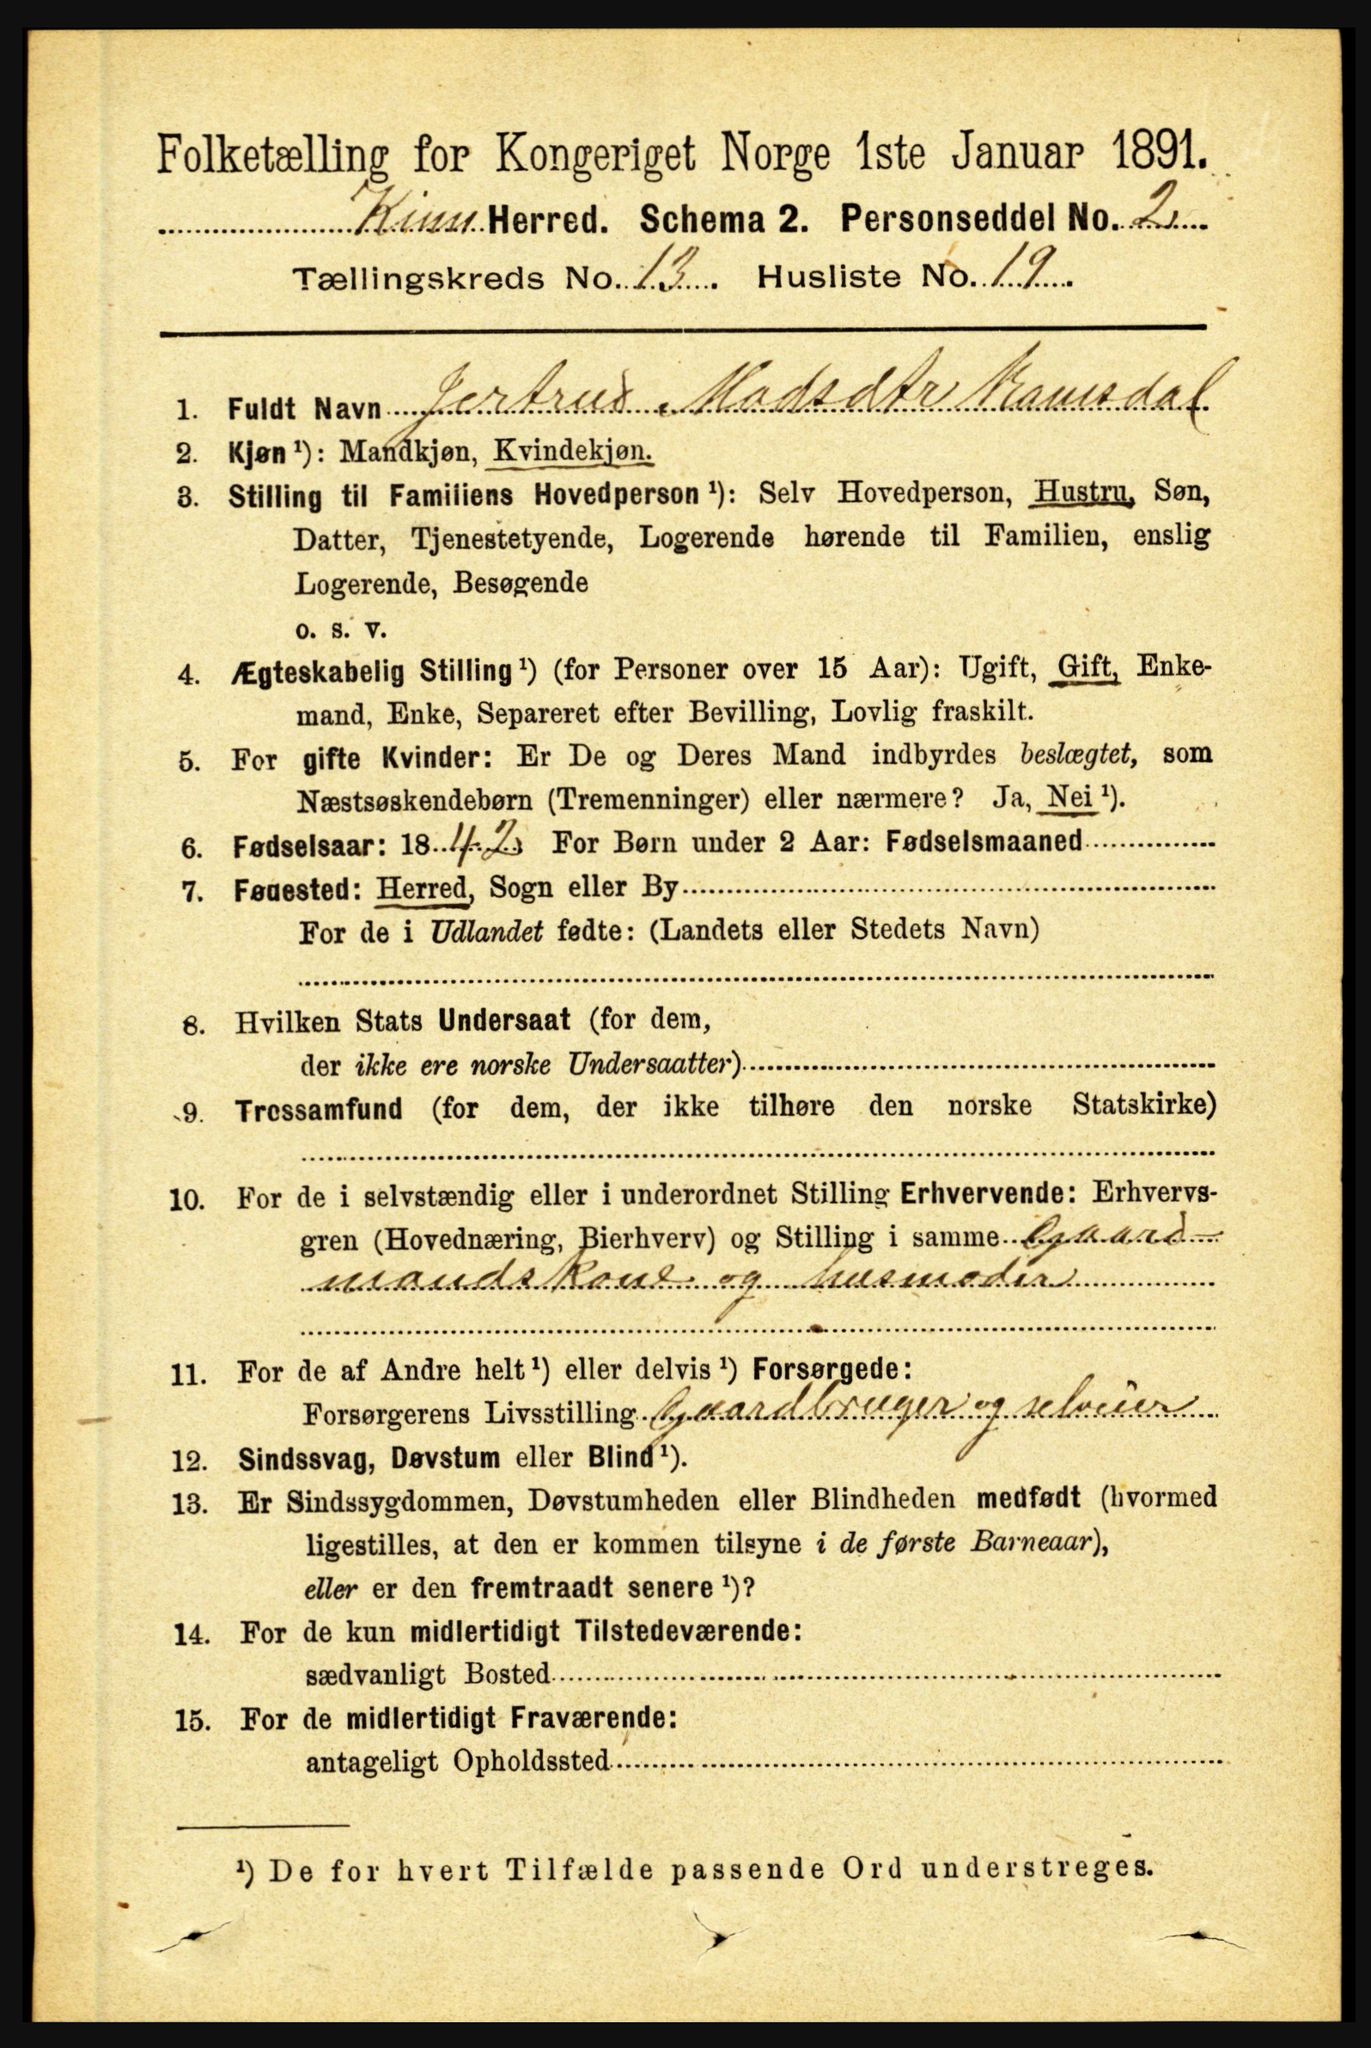 Folketælling for Kongeriget Norge 1ste Januar 1891.
Kinn Herred. Schema 2. Personseddel No. 2.
Tællingskreds No. 13. Husliste No. 19.
1. Fuldt Navn Jertrud Madsdtr Ramsdal
2. Kjøn¹): Mandkjøn, Kvindekjøn.
3. Stilling til Familiens Hovedperson¹): Selv Hovedperson, Hustru, Søn,
Datter, Tjenestetyende, Logerende hørende til Familien, enslig
Logerende, Besøgende
o. s. v.
4. Ægteskabelig Stilling¹) (for Personer over 15 Aar): Ugift, Gift, Enke-
mand, Enke, Separeret efter Bevilling, Lovlig fraskilt.
5. For gifte Kvinder: Er De og Deres Mand indbyrdes beslægtet, som
Næstsøskendebørn (Tremenninger) eller nærmere? Ja, Nei¹).
6. Fødselsaar: 1842 For Børn under 2 Aar: Fødselsmaaned
7. Fødested: Herred, Sogn eller By
For de i Udlandet fødte: (Landets eller Stedets Navn)
8. Hvilken Stats Undersaat (for dem,
der ikke ere norske Undersaatter)
9. Trossamfund (for dem, der ikke tilhøre den norske Statskirke)
10. For de i selvstændig eller i underordnet Stilling Erhvervende: Erhvervs-
gren (Hovednæring, Bierhverv) og Stilling i samme Gaard-
mandskone og husmoder
11. For de af Andre helt¹) eller delvis¹) Forsørgede:
Forsørgerens Livsstilling Gaardbruger og selveier
12. Sindssvag, Døvstum eller Blind¹).
13. Er Sindssygdommen, Døvstumheden eller Blindheden medfødt (hvormed
ligestilles, at den er kommen tilsyne i de første Barneaar),
eller er den fremtraadt senere¹)?
14. For de kun midlertidigt Tilstedeværende:
sædvanligt Bosted
15. For de midlertidigt Fraværende:
antageligt Opholdssted
¹) De for hvert Tilfælde passende Ord understreges.